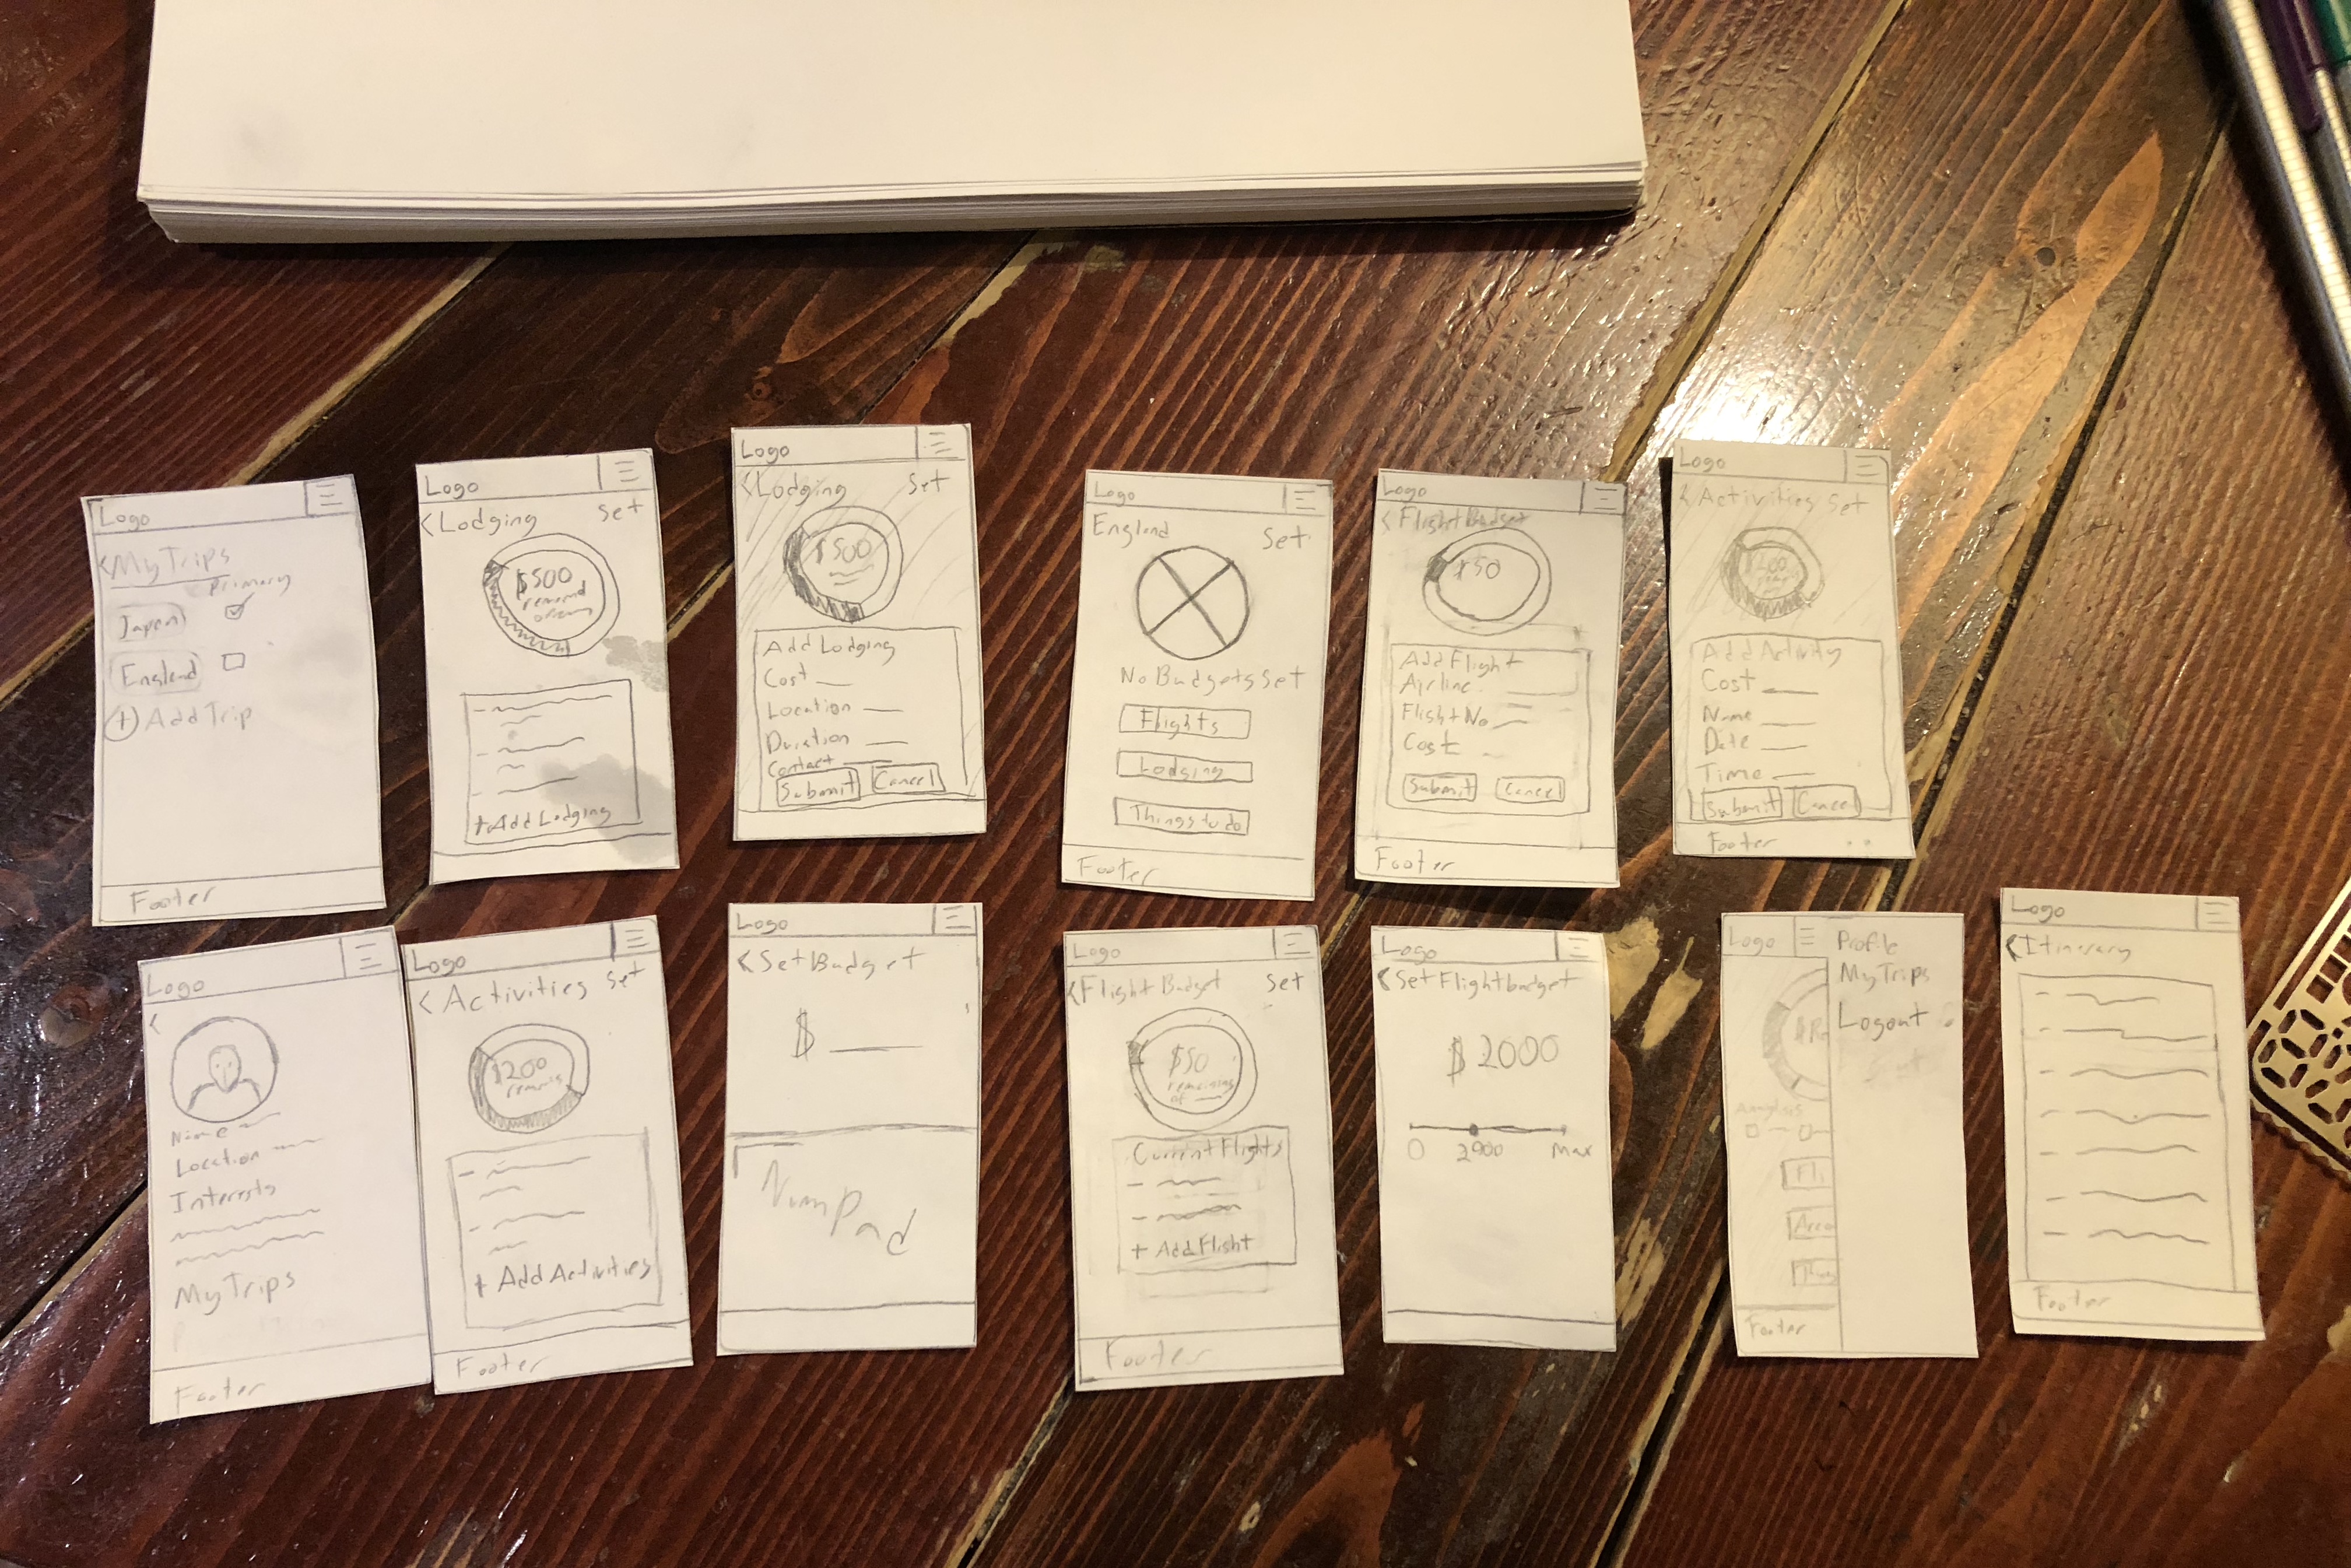 Logo
<My Trips
Primary
Japan
England
+ Add Trip
Footer
Logo
<Lodging Set
$500
+ Add Lodging
Logo
<Lodging Set
$500
Add Lodging
Cost
Location
Duration
Contact
Submit Cancel
Logo
England Set
No Budgets Set
Flights
Lodging
Things to do
Footer
Logo
<Flight Budget
$50
Add Flight
Airline
Flight No
Cost
Submit Cancel
Footer
Logo
<Activities Set
$200
Add Activity
Cost
Name
Date
Time
Submit Cancel
Footer
Logo
<
Name
Location
Interests
My Trips
Footer
Logo
<Activities Set
$200
remains
+ Add Activities
Footer
Logo
<Set Budget
$
Numpad
Logo
<Flight Budget Set
$50
remaining
of
Current Flights
+ Add Flight
Footer
Logo
<Set Flight budget
$2000
0 2000 Max
Logo
Profile
My Trips
Logout
Analysis
Footer
Logo
<Itinerary
Footer